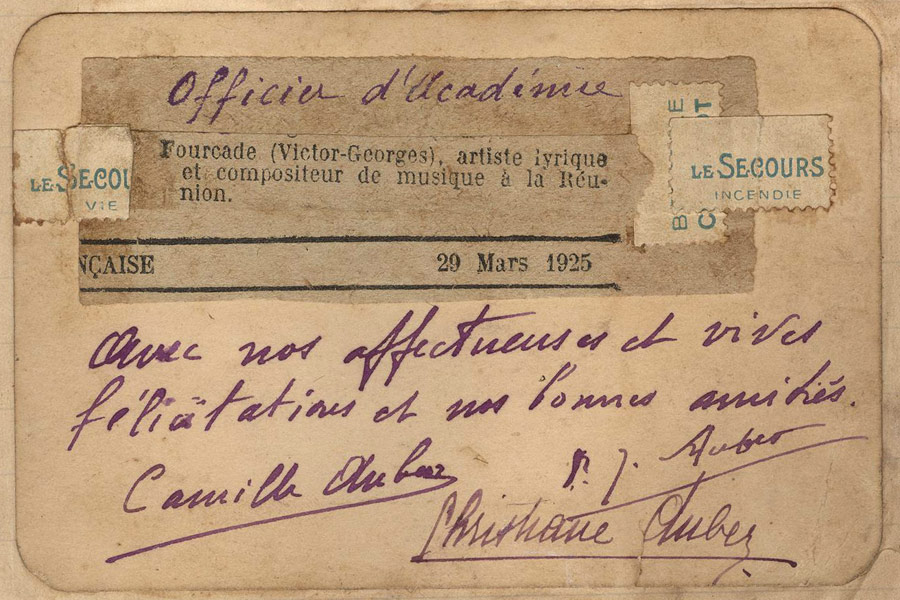 Officier d'Académie
Fourcade (Victor-Georges), artiste lyrique
et compositeur de musique à la Réu-
nion.
LE SECOU
VIE
LE SECOURS
INCENDIE
NÇAISE 29 Mars 1925
Avec nos affectueuses et vives
félicitations et nos bonnes amitiés.
Camille Auber
P. J. Auber
Christiane Auber